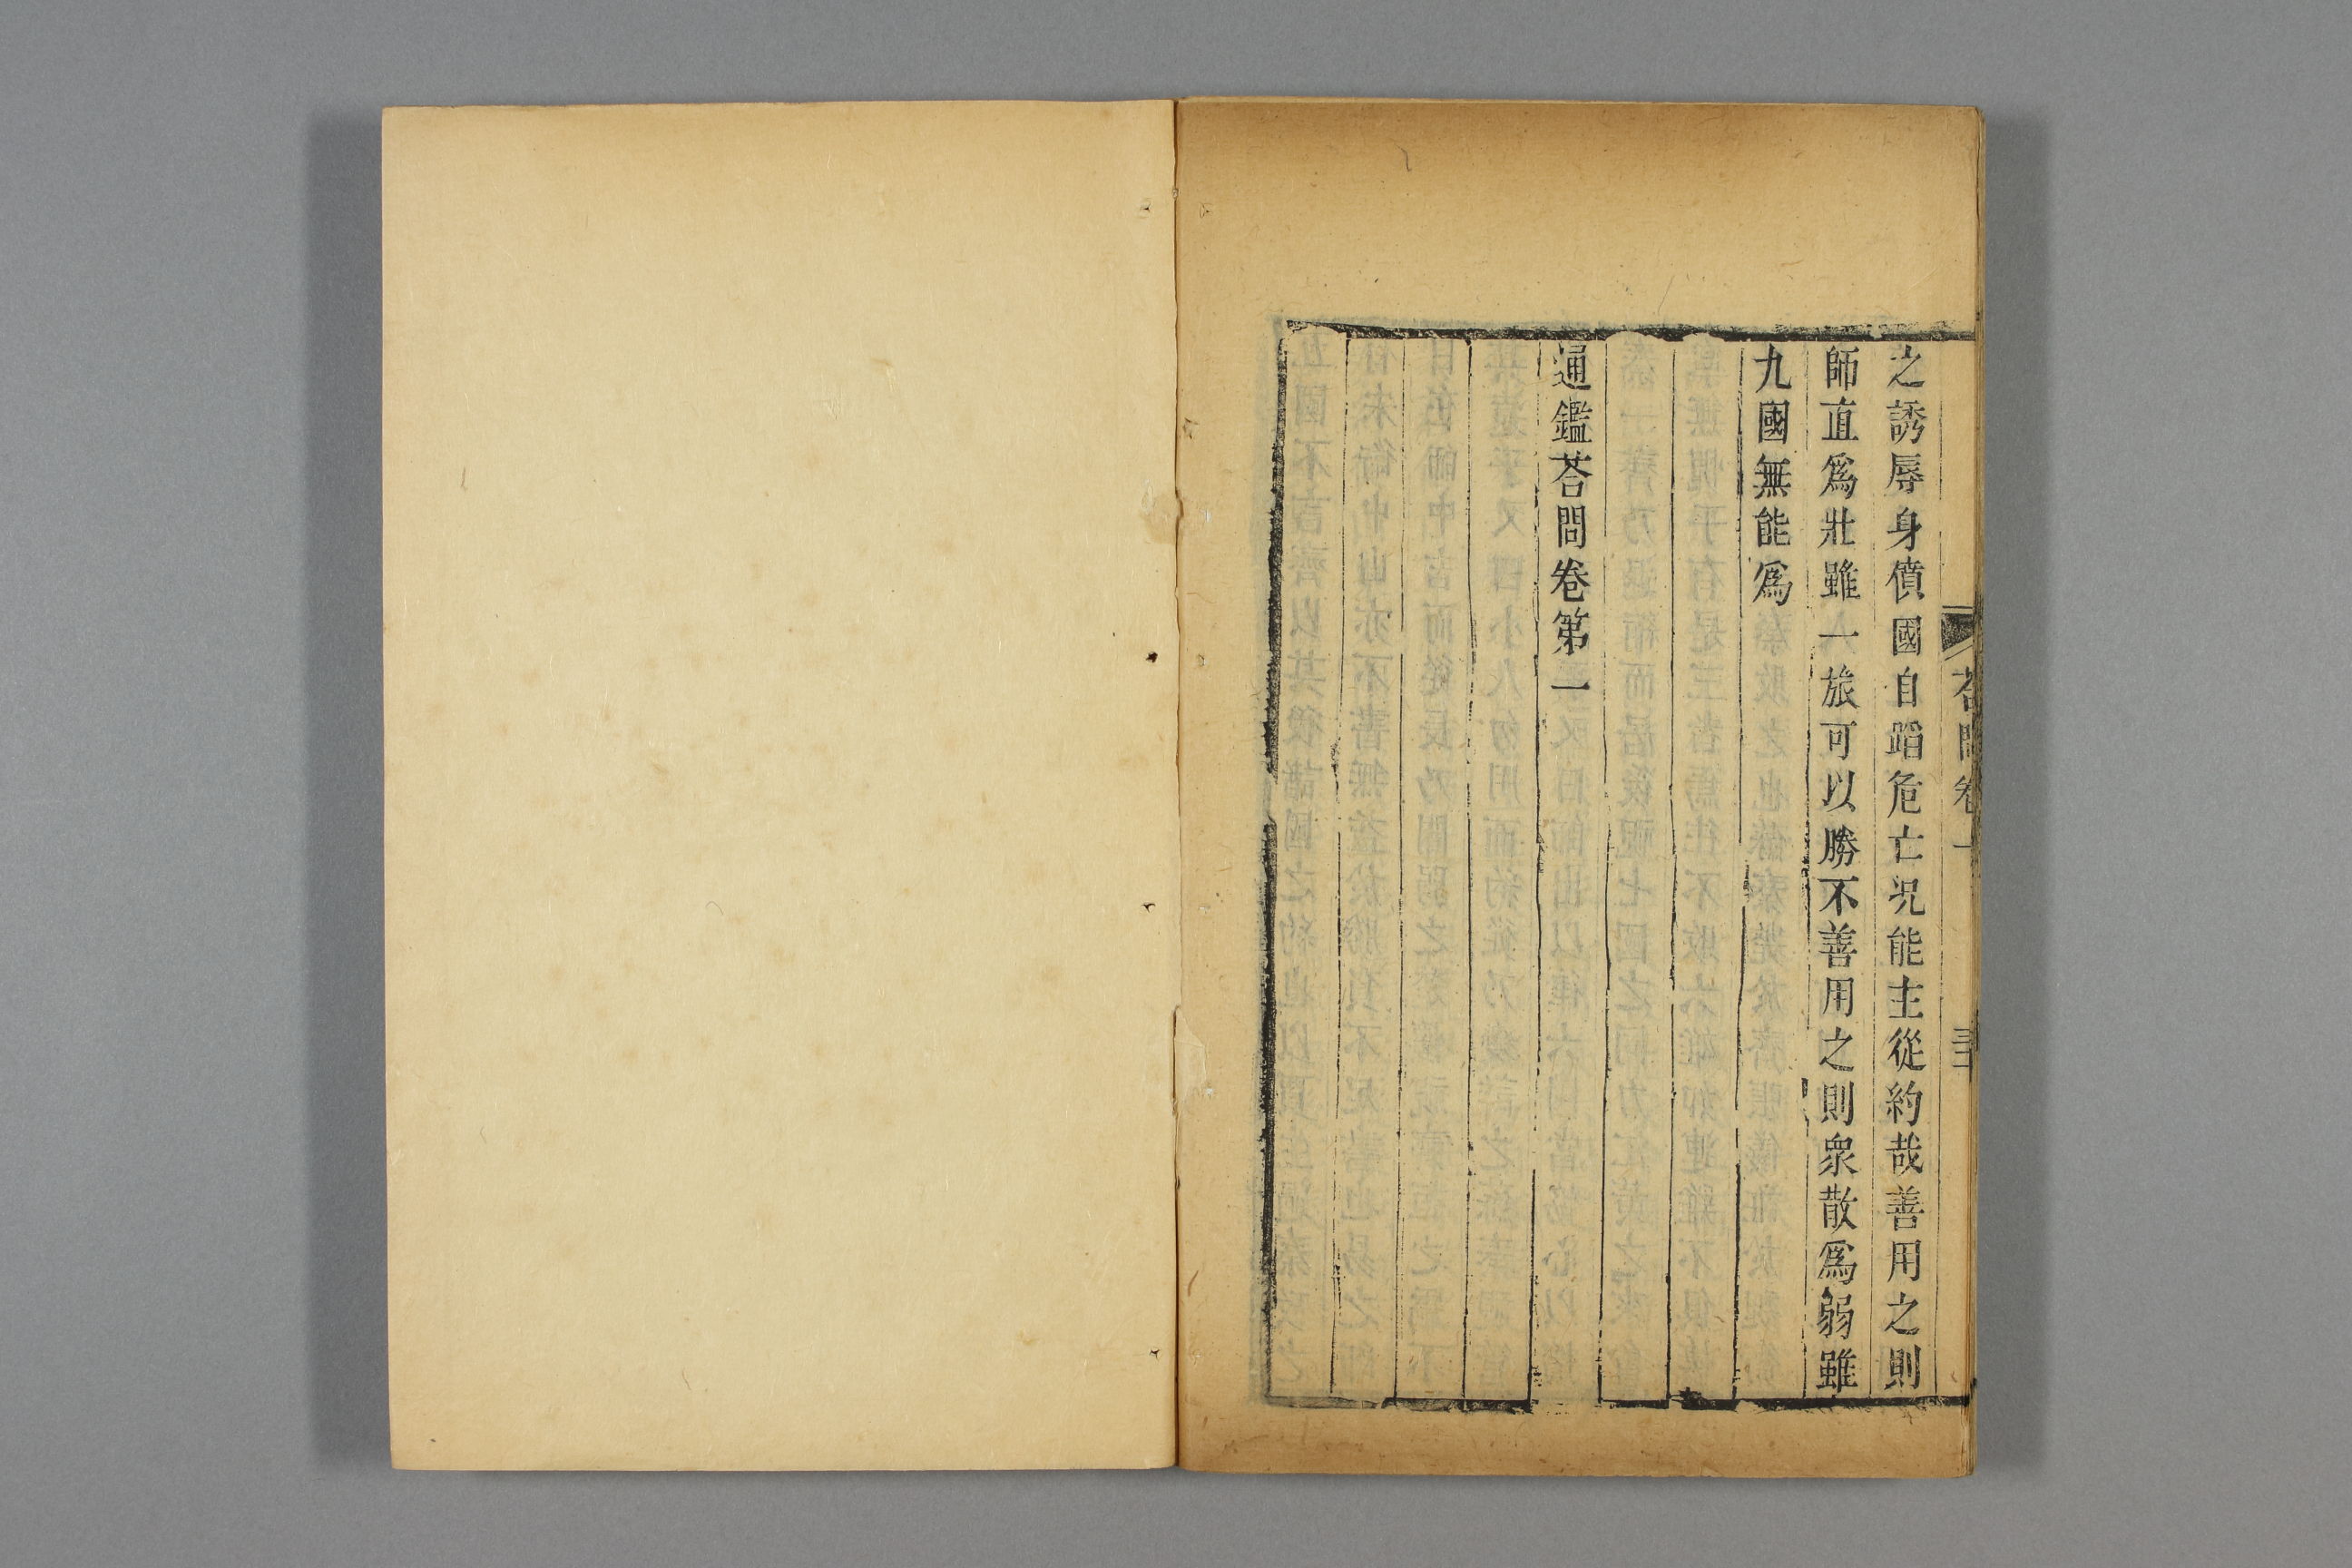 荅問卷一
之誘辱身僨國自蹈危亡况能主從約哉善用之則
師直爲壯雖一旅可以勝不善用之則衆散爲弱雖
九國無能爲
通鑑荅問卷第一